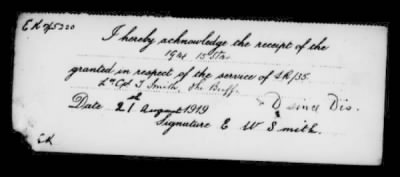 EK 045320
I hereby acknowledge the receipt of the
1914 15 Star
granted in respect of the service of SR/35
L/Cpl T Smith, The Buffs
D since Dis.
Date 21st August 1919
Signature E W Smith.
EK